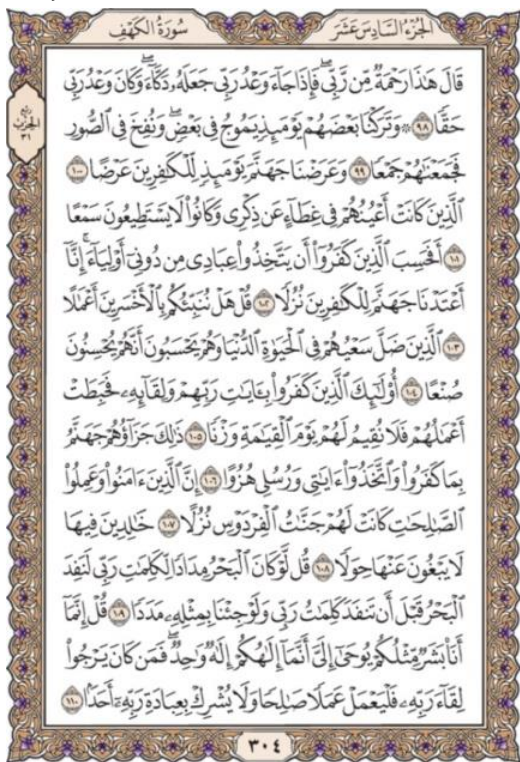 الجزء السادس عشر
سورة الكهف
قَالَ هَٰذَا رَحْمَةٌ مِّن رَّبِّي ۖ فَإِذَا جَاءَ وَعْدُ رَبِّي جَعَلَهُ دَكَّاءَ ۖ وَكَانَ وَعْدُ رَبِّي
ربع الحزب ٣١
حَقًّا ٩٨ ۞ وَتَرَكْنَا بَعْضَهُمْ يَوْمَئِذٍ يَمُوجُ فِي بَعْضٍ ۖ وَنُفِخَ فِي الصُّورِ
فَجَمَعْنَاهُمْ جَمْعًا ٩٩ وَعَرَضْنَا جَهَنَّمَ يَوْمَئِذٍ لِّلْكَافِرِينَ عَرْضًا ١٠٠
الَّذِينَ كَانَتْ أَعْيُنُهُمْ فِي غِطَاءٍ عَن ذِكْرِي وَكَانُوا لَا يَسْتَطِيعُونَ سَمْعًا
١٠١ أَفَحَسِبَ الَّذِينَ كَفَرُوا أَن يَتَّخِذُوا عِبَادِي مِن دُونِي أَوْلِيَاءَ ۚ إِنَّا
أَعْتَدْنَا جَهَنَّمَ لِلْكَافِرِينَ نُزُلًا ١٠٢ قُلْ هَلْ نُنَبِّئُكُم بِالْأَخْسَرِينَ أَعْمَالًا
١٠٣ الَّذِينَ ضَلَّ سَعْيُهُمْ فِي الْحَيَاةِ الدُّنْيَا وَهُمْ يَحْسَبُونَ أَنَّهُمْ يُحْسِنُونَ
صُنْعًا ١٠٤ أُولَٰئِكَ الَّذِينَ كَفَرُوا بِآيَاتِ رَبِّهِمْ وَلِقَائِهِ فَحَبِطَتْ
أَعْمَالُهُمْ فَلَا نُقِيمُ لَهُمْ يَوْمَ الْقِيَامَةِ وَزْنًا ١٠٥ ذَٰلِكَ جَزَاؤُهُمْ جَهَنَّمُ
بِمَا كَفَرُوا وَاتَّخَذُوا آيَاتِي وَرُسُلِي هُزُوًا ١٠٦ إِنَّ الَّذِينَ آمَنُوا وَعَمِلُوا
الصَّالِحَاتِ كَانَتْ لَهُمْ جَنَّاتُ الْفِرْدَوْسِ نُزُلًا ١٠٧ خَالِدِينَ فِيهَا
لَا يَبْغُونَ عَنْهَا حِوَلًا ١٠٨ قُل لَّوْ كَانَ الْبَحْرُ مِدَادًا لِّكَلِمَاتِ رَبِّي لَنَفِدَ
الْبَحْرُ قَبْلَ أَن تَنفَدَ كَلِمَاتُ رَبِّي وَلَوْ جِئْنَا بِمِثْلِهِ مَدَدًا ١٠٩ قُلْ إِنَّمَا
أَنَا بَشَرٌ مِّثْلُكُمْ يُوحَىٰ إِلَيَّ أَنَّمَا إِلَٰهُكُمْ إِلَٰهٌ وَاحِدٌ ۖ فَمَن كَانَ يَرْجُوا
لِقَاءَ رَبِّهِ فَلْيَعْمَلْ عَمَلًا صَالِحًا وَلَا يُشْرِكْ بِعِبَادَةِ رَبِّهِ أَحَدًا ١١٠
٣٠٤